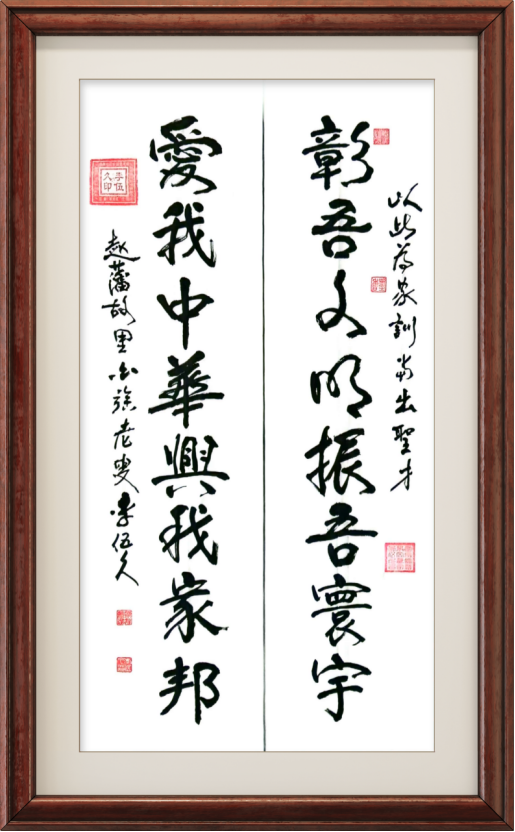 以此为家訓当出聖才
彰吾文明振吾寰宇
愛我中華興我家邦
赵藩故里白族老叟李伍久
李伍
久印